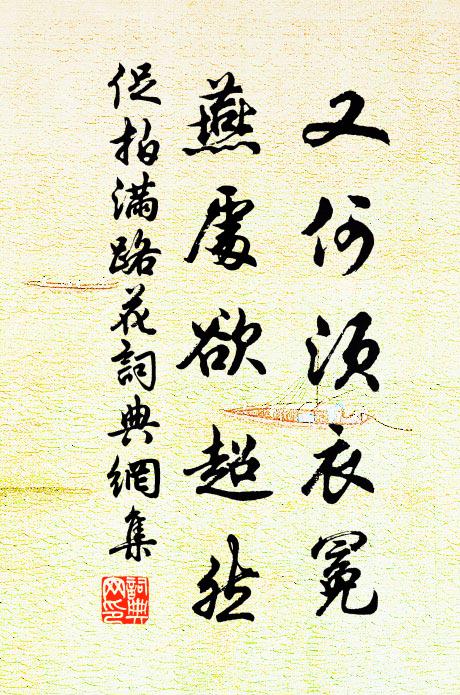 又何須衣冕
燕處欲超然
促拍滿路花詞典網集
詞典
网印